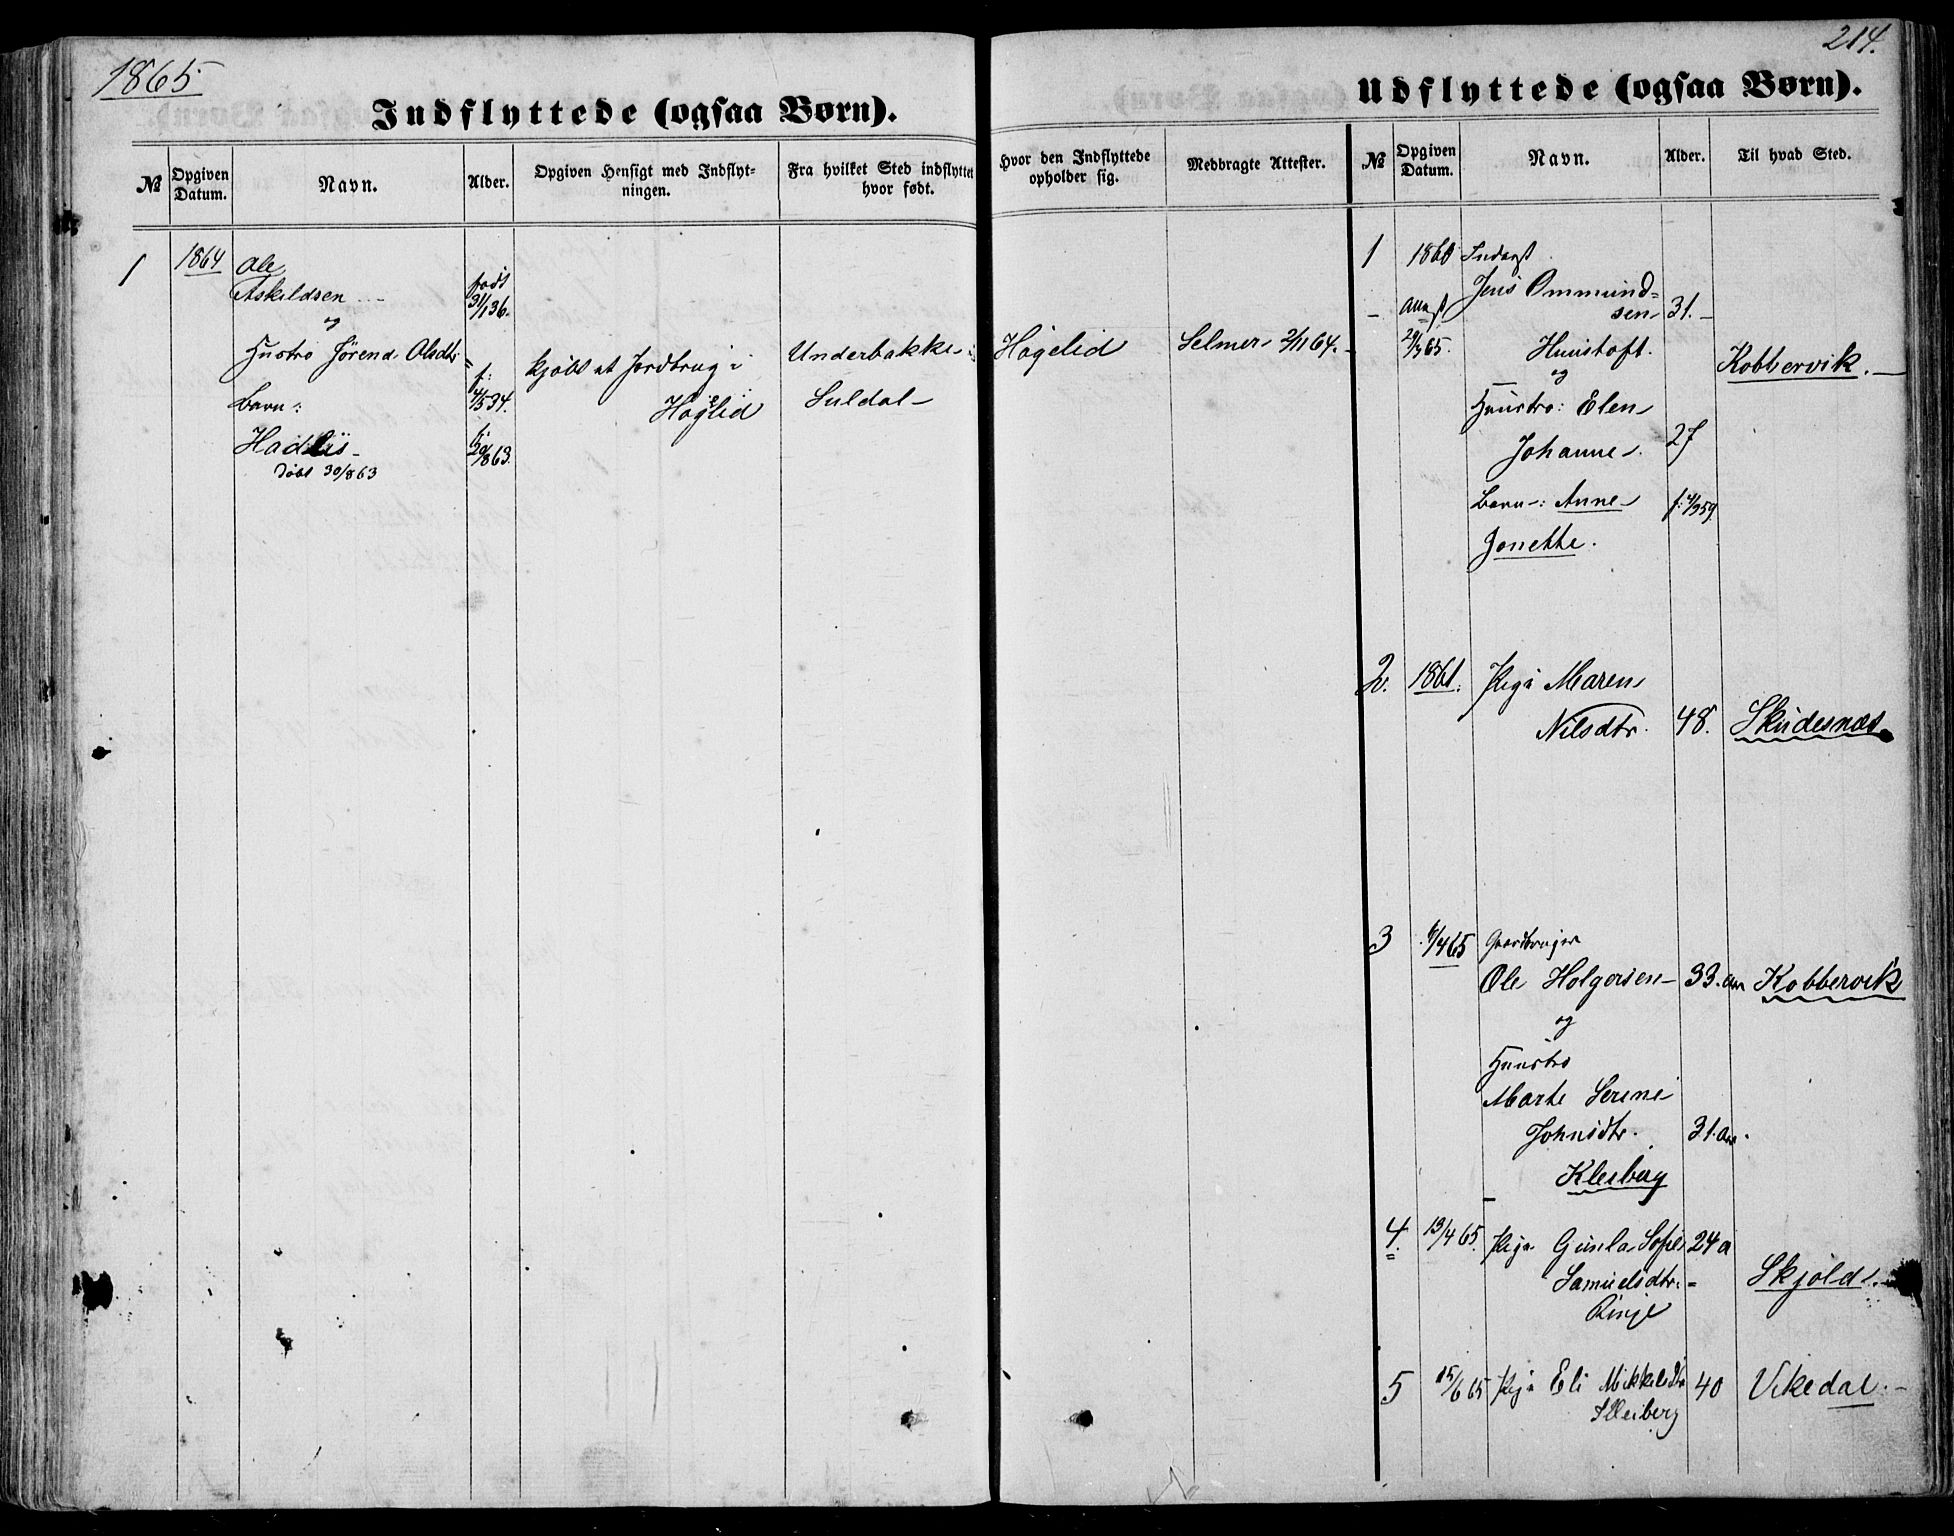 1865
Indflyttede (ogsaa Børn).
№ Opgiven Datum. Navn. Alder. Opgiven Hensigt med Indflyt-
ningen. Fra hvilket Sted indflyttet
hvor født.
1 1864 Ole
Askildsen født 31/1 36.
og
Hustro Jørend Olsdtr f: 4/5 34. kjøbt et Jordbrug i Underbakke
Barn: Høgelid Suldal
Hadlis f: 20/8 63.
døbt 30/8 63
214.
Udflyttede (ogsaa Børn).
Hvor den Indflyttede
opholder sig. Medbragte Attester. № Opgiven Datum. Navn. Alder. Til hvad Sted.
Høgelid Selmer 2/11 64.
1 1860 Inderst
Jens Ommund=
sen 31.
29/3 65. Huustoft.
og Kobbervik.
Huustro: Elen
Johanne. 27
Barn: Anne f: 4/9 59
Jonette.
2. 1861. Pige Maren
Nilsdtr. 48. Skudesnæs
3 6/4 65 Gaardbruger
Ole Holgersen 33. aar Kobbervik
og
Huustro
Marte Serine
Johnsdtr. 31. aar.
Kleiberg
4. 13/4 65. Pige Gunla Sofie 24 a
Samuelsdtr. Skjold.
Ringe
5 15/6 65 Pige Eli Mikkelsdtr 40 Vikedal.
Kleiberg